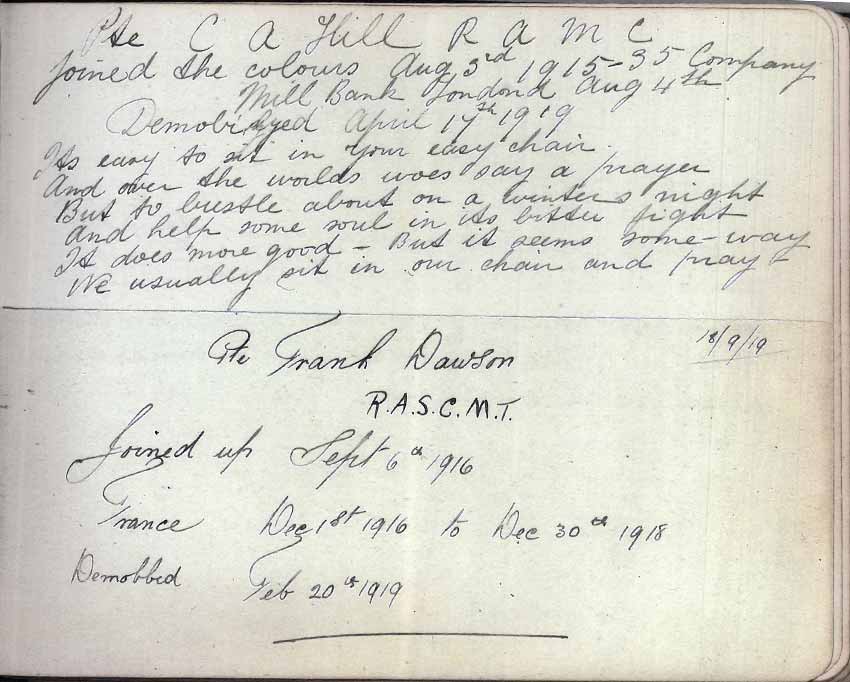 Pte C A Hill R A M C
Joined the colours Aug 3rd 1915 - 35 Company
Mill Bank London Aug 4th
Demobilyed April 17th 1919
Its easy to sit in your easy chair.
And over the worlds woes say a prayer
But to bustle about on a winters night
And help some soul in its bitter fight
It does more good - But it seems some-way
We usually sit in our chair and pray -
Pte Frank Dawson 18/9/19
R.A.S.C.M.T.
Joined up Sept 6th 1916
France Dec 1st 1916 to Dec 30th 1918
Demobbed Feb 20th 1919